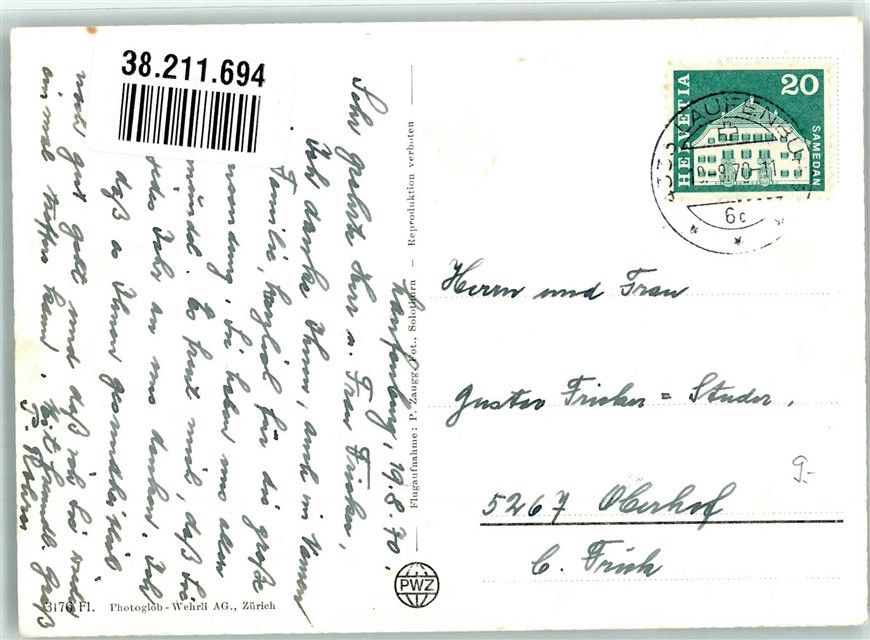 38.211.694
Laufenburg, 19.8.70.
Sehr geehrte Herr u. Frau Fricker,
Ich danke Ihnen, auch im Namen
Familie, herzlich für die große
Sie haben uns allen
Es freut mich, daß Sie
jedes Jahr an uns denken. Ich
daß es Ihnen gesundheitlich
gut geht und daß ich Sie wieder
einmal treffen kann. Mit freundl. Gruß
P. Rohrer
3176 Fl. Photoglob-Wehrli AG., Zürich
Flugaufnahme: P. Zaugg, Fot., Solothurn — Reproduktion verboten
PWZ
HELVETIA
20
SAMEDAN
LAUFENBU
8.70-11
6c
Herrn und Frau
Gustav Fricker = Studer,
5267 Oberhof
b. Frick
9.-